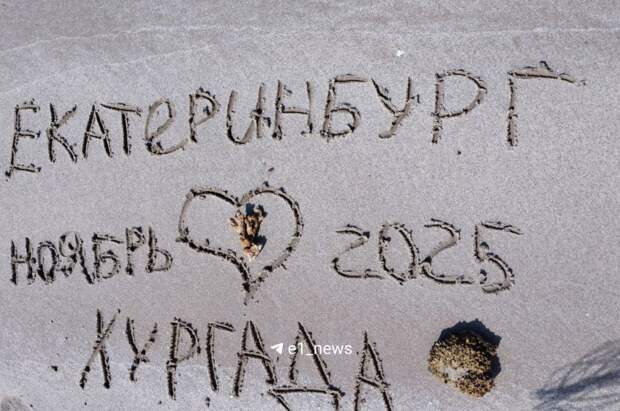 ЕКАТеРИНБУРГ
НОЯБРЬ 2025
ХУРГАДА
e1_news